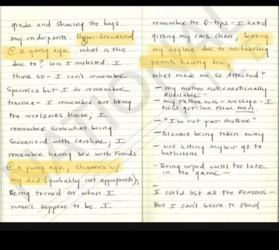 grade and showing the boys
my underpants. Hyper-sexualized
@ a young age. What is this
due to? Was I molested. I
think so - I can't remember
specifics but I do remember
trauma - I remember not liking
the house; I
remember somewhat being
sexualized with caroline; I
remember having sex with friends
@ a young age; showers w/
my dad (probably not appropriate).
Being turned on when I
wasn't suppose to be. I
remember the Q-tips - I hated
getting my ears clean,
my due to overhearing
parents having sex.
What made me so attached?
- my mother not emotionally
available -
- my father was - message - I
love from men
- "I'm not your mother"
- Blanket being taken away
- not letting myself go to
bathroom
- Being wiped until to late
in the game -
I could list all the reasons -
But I can't seem to find